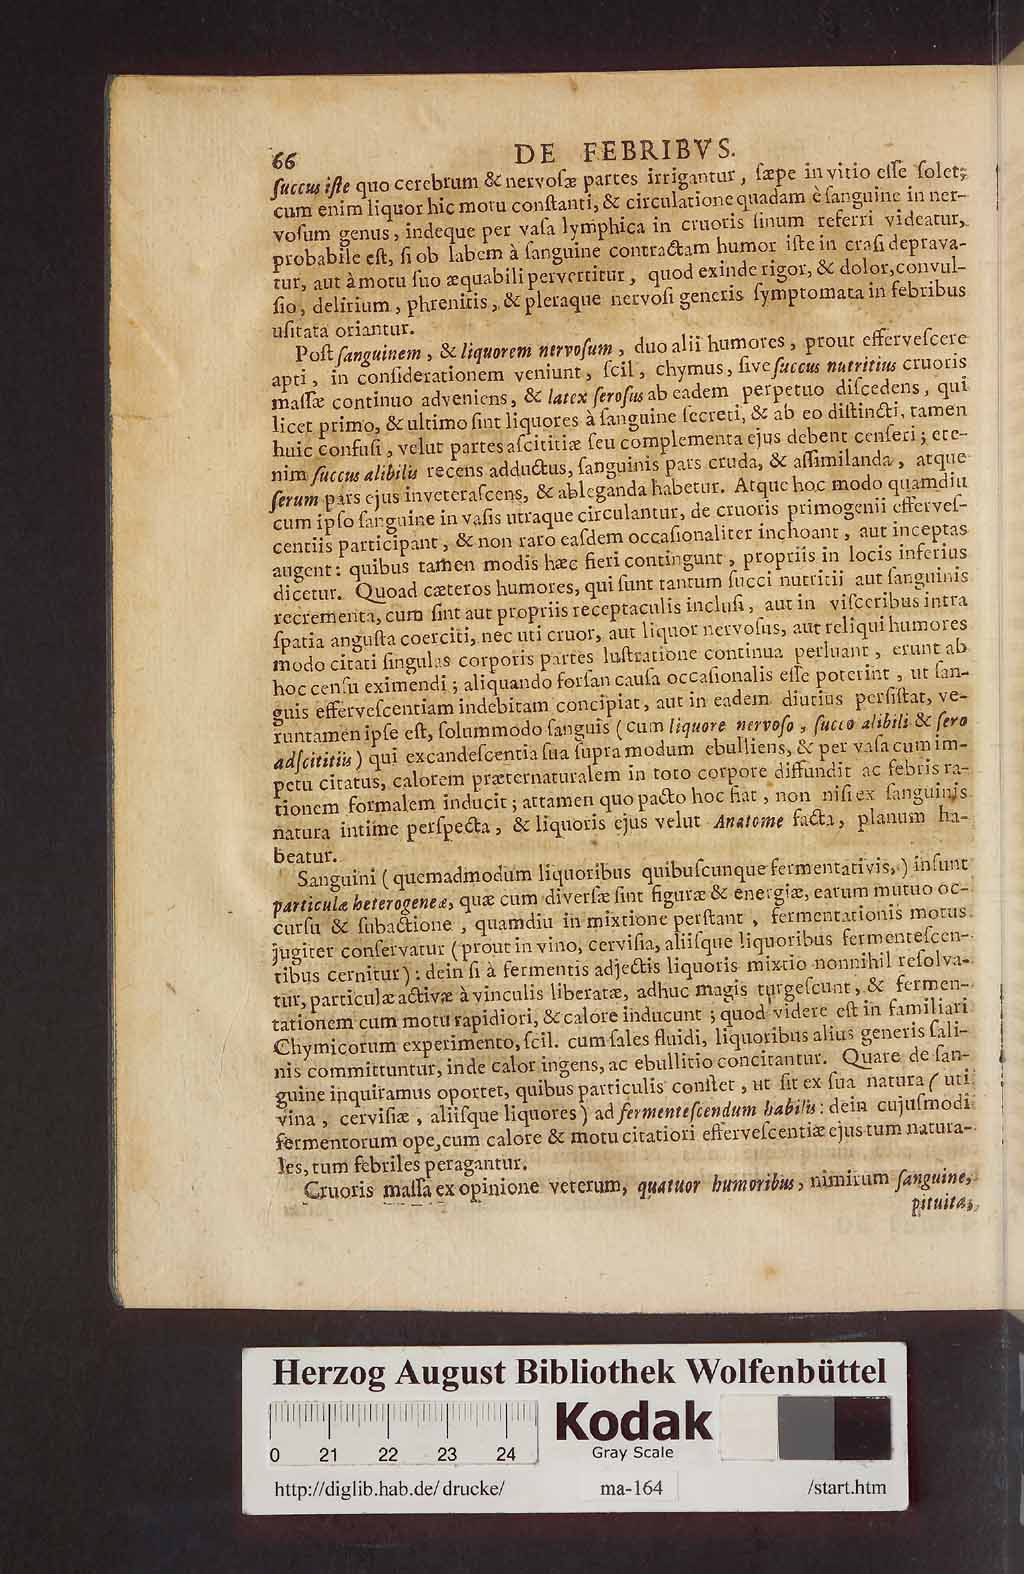 66 DE FEBRIBVS.
ſuccus iſte quo cerebrum & nervoſæ partes irrigantur, ſæpe in vitio eſſe ſolet;
cum enim liquor hic motu conſtanti, & circulatione quadam è ſanguine in ner-
voſum genus, indeque per vaſa lymphica in cruoris ſinum referri videatur,
probabile eſt, ſi ob labem à ſanguine contractam humor iſte in craſi deprava-
tur, aut à motu ſuo æquabili pervertitur, quod exinde rigor, & dolor, convul-
ſio, delirium, phrenitis, & pleraque nervoſi generis ſymptomata in febribus
uſitata oriantur.
Poſt ſanguinem, & liquorem nervoſum, duo alii humores, prout efferveſcere
apti, in conſiderationem veniunt, ſcil, chymus, ſive ſuccus nutritius cruoris
maſſæ continuo adveniens, & latex ſeroſus ab eadem perpetuo diſcedens, qui
licet primo, & ultimo ſint liquores à ſanguine ſecreti, & ab eo diſtincti, tamen
huic confuſi, velut partes aſcititiæ ſeu complementa ejus debent cenſeri; ete-
nim ſuccus alibilis recens adductus, ſanguinis pars cruda, & aſſimilanda, atque
ſerum pars ejus inveteraſcens, & ableganda habetur. Atque hoc modo quamdiu
cum ipſo ſanguine in vaſis utraque circulantur, de cruoris primogenii effervеſ-
centiis participant, & non raro eaſdem occaſionaliter inchoant, aut inceptas
augent: quibus tamen modis hæc fieri contingunt, propriis in locis inferius
dicetur. Quoad cæteros humores, qui ſunt tantum ſucci nutritii aut ſanguinis
recrementa, cum ſint aut propriis receptaculis incluſi, aut in viſceribus intra
ſpatia anguſta coerciti, nec uti cruor, aut liquor nervoſus, aut reliqui humores
modo citati ſingulas corporis partes luſtratione continua perluant, erunt ab
hoc cenſu eximendi; aliquando forſan cauſa occaſionalis eſſe poterint, ut ſan-
guis efferveſcentiam indebitam concipiat, aut in eadem diutius perſiſtat, ve-
runtamen ipſe eſt, ſolummodo ſanguis (cum liquore nervoſo, ſucco alibili & ſero
adſcititiis) qui excandeſcentia ſua ſupra modum ebulliens, & per vaſa cum im-
petu citatus, calorem præternaturalem in toto corpore diffundit ac febris ra-
tionem formalem inducit; attamen quo pacto hoc fiat, non niſi ex ſanguinis
natura intime perſpecta, & liquoris ejus velut Anatome facta, planum ha-
beatur.
Sanguini (quemadmodum liquoribus quibuſcunque fermentativis,) inſunt
particulæ heterogeneæ, quæ cum diverſæ ſint figuræ & energiæ, earum mutuo oc-
curſu & ſubactione, quamdiu in mixtione perſtant, fermentationis motus
jugiter conſervatur (prout in vino, cerviſia, aliiſque liquoribus fermenteſcen-
tibus cernitur): dein ſi à fermentis adjectis liquoris mixtio nonnihil reſolva-
tur, particulæ activæ à vinculis liberatæ, adhuc magis turgeſcunt, & fermen-
tationem cum motu rapidiori, & calore inducunt; quod videre eſt in familiari
Chymicorum experimento, ſcil. cum ſales fluidi, liquoribus alius generis ſali-
nis committuntur, inde calor ingens, ac ebullitio concitantur. Quare de ſan-
guine inquiramus oportet, quibus particulis conſtet, ut ſit ex ſua natura (uti
vina, cerviſiæ, aliiſque liquores) ad fermenteſcendum habilis: dein cujuſmodi
fermentorum ope, cum calore & motu citatiori efferveſcentiæ ejus tum natura-
les, tum febriles peragantur.
Cruoris maſſa ex opinione veterum, quatuor humoribus, nimirum ſanguine,
pituita,
Herzog August Bibliothek Wolfenbüttel
0 21 22 23 24
Kodak
Gray Scale
http://diglib.hab.de/drucke/ ma-164 /start.htm